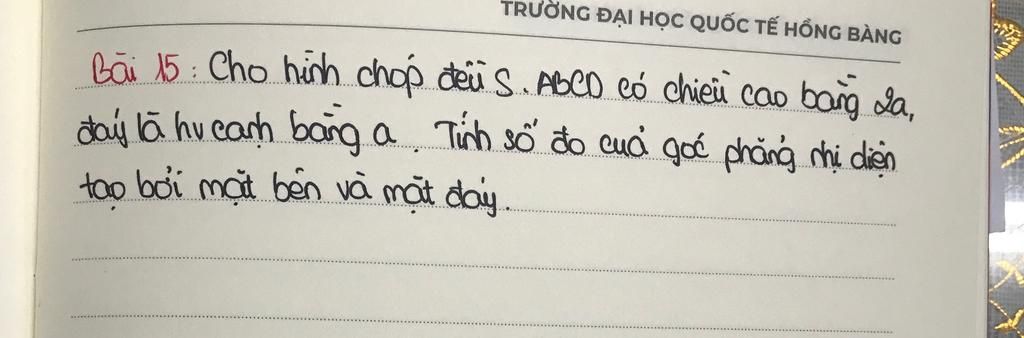 TRƯỜNG ĐẠI HỌC QUỐC TẾ HỒNG BÀNG
Bài 15 : Cho hình chóp đều S.ABCD có chiều cao bằng 2a,
đáy là hv cạnh bằng a. Tính số đo của góc phẳng nhị diện
tạo bởi mặt bên và mặt đáy.